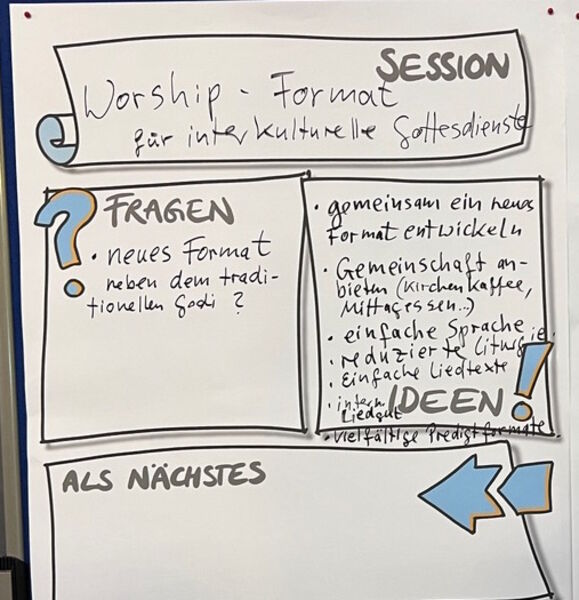 SESSION
Worship - Format
für interkulturelle Gottesdienste
FRAGEN
• neues Format
neben dem tradi-
tionellen Godi ?
• gemeinsam ein neues
Format entwickeln
• Gemeinschaft an-
bieten (Kirchenkaffee,
Mittagessen...)
• einfache Sprache
• reduzierte Liturgie
• Einfache Liedtexte
• intern.
Liedgut
IDEEN
• vielfältige Predigtformate
ALS NÄCHSTES